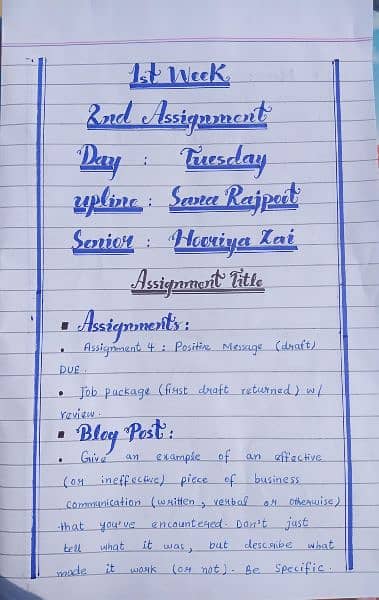 1st Week
2nd Assignment
Day : Tuesday
upline : Sana Rajpoot
Senior : Hooriya Zai
Assignment Title
▪ Assignments :
• Assignment 4 : Positive Message (draft)
DUE.
• Job package (first draft returned) w/
review.
▪ Blog Post :
• Give an example of an effective
(or ineffective) piece of business
communication (written, verbal or otherwise)
that you've encountered. Don't just
tell what it was, but describe what
made it work (or not). Be Specific.